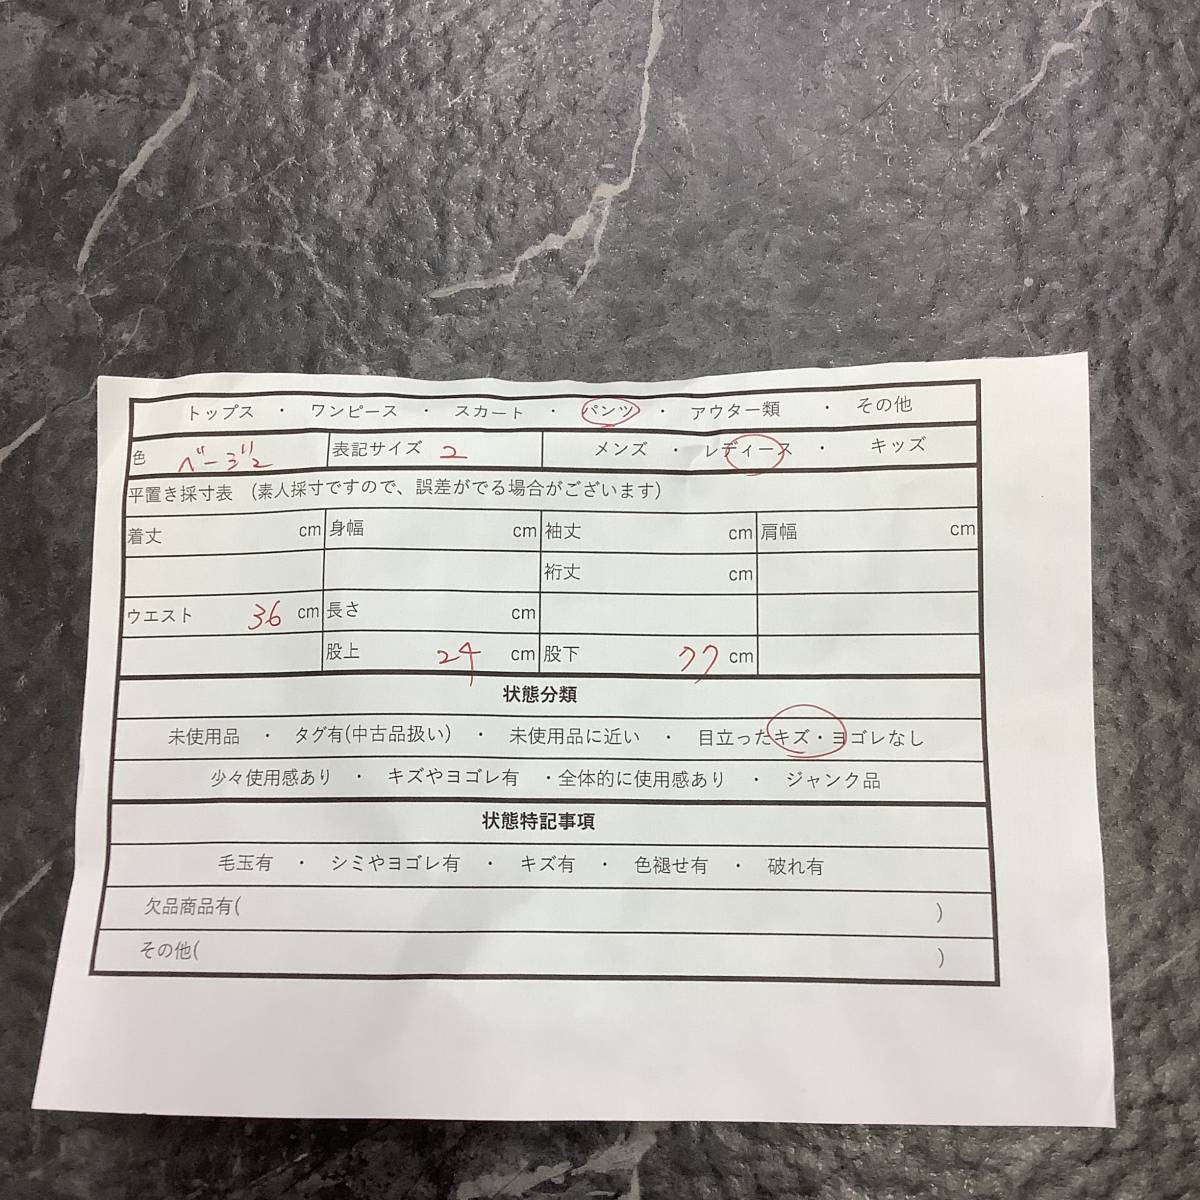 トップス ・ ワンピース ・ スカート ・ パンツ ・ アウター類 ・ その他
色 ベージュ 表記サイズ 2 メンズ ・ レディース ・ キッズ
平置き採寸表 (素人採寸ですので、誤差がでる場合がございます)
着丈 cm 身幅 cm 袖丈 cm 肩幅 cm
裄丈 cm
ウエスト 36 cm 長さ cm
股上 24 cm 股下 77 cm
状態分類
未使用品 ・ タグ有(中古品扱い) ・ 未使用品に近い ・ 目立ったキズ・ヨゴレなし
少々使用感あり ・ キズやヨゴレ有 ・全体的に使用感あり ・ ジャンク品
状態特記事項
毛玉有 ・ シミやヨゴレ有 ・ キズ有 ・ 色褪せ有 ・ 破れ有
欠品商品有( )
その他( )